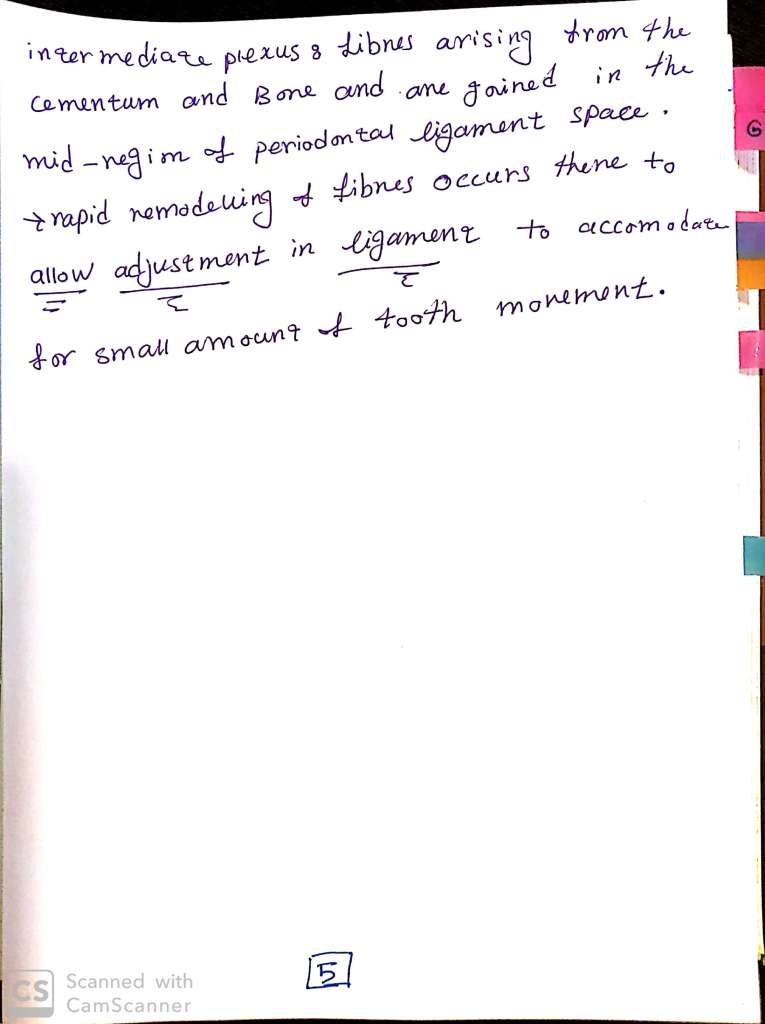 intermediate plexus : fibres arising from the
cementum and Bone and are joined in the
mid-region of periodontal ligament space.
→ rapid remodelling of fibres occurs there to
allow adjustment in ligament to accomodate
for small amount of tooth movement.
5
CS Scanned with
CamScanner
G